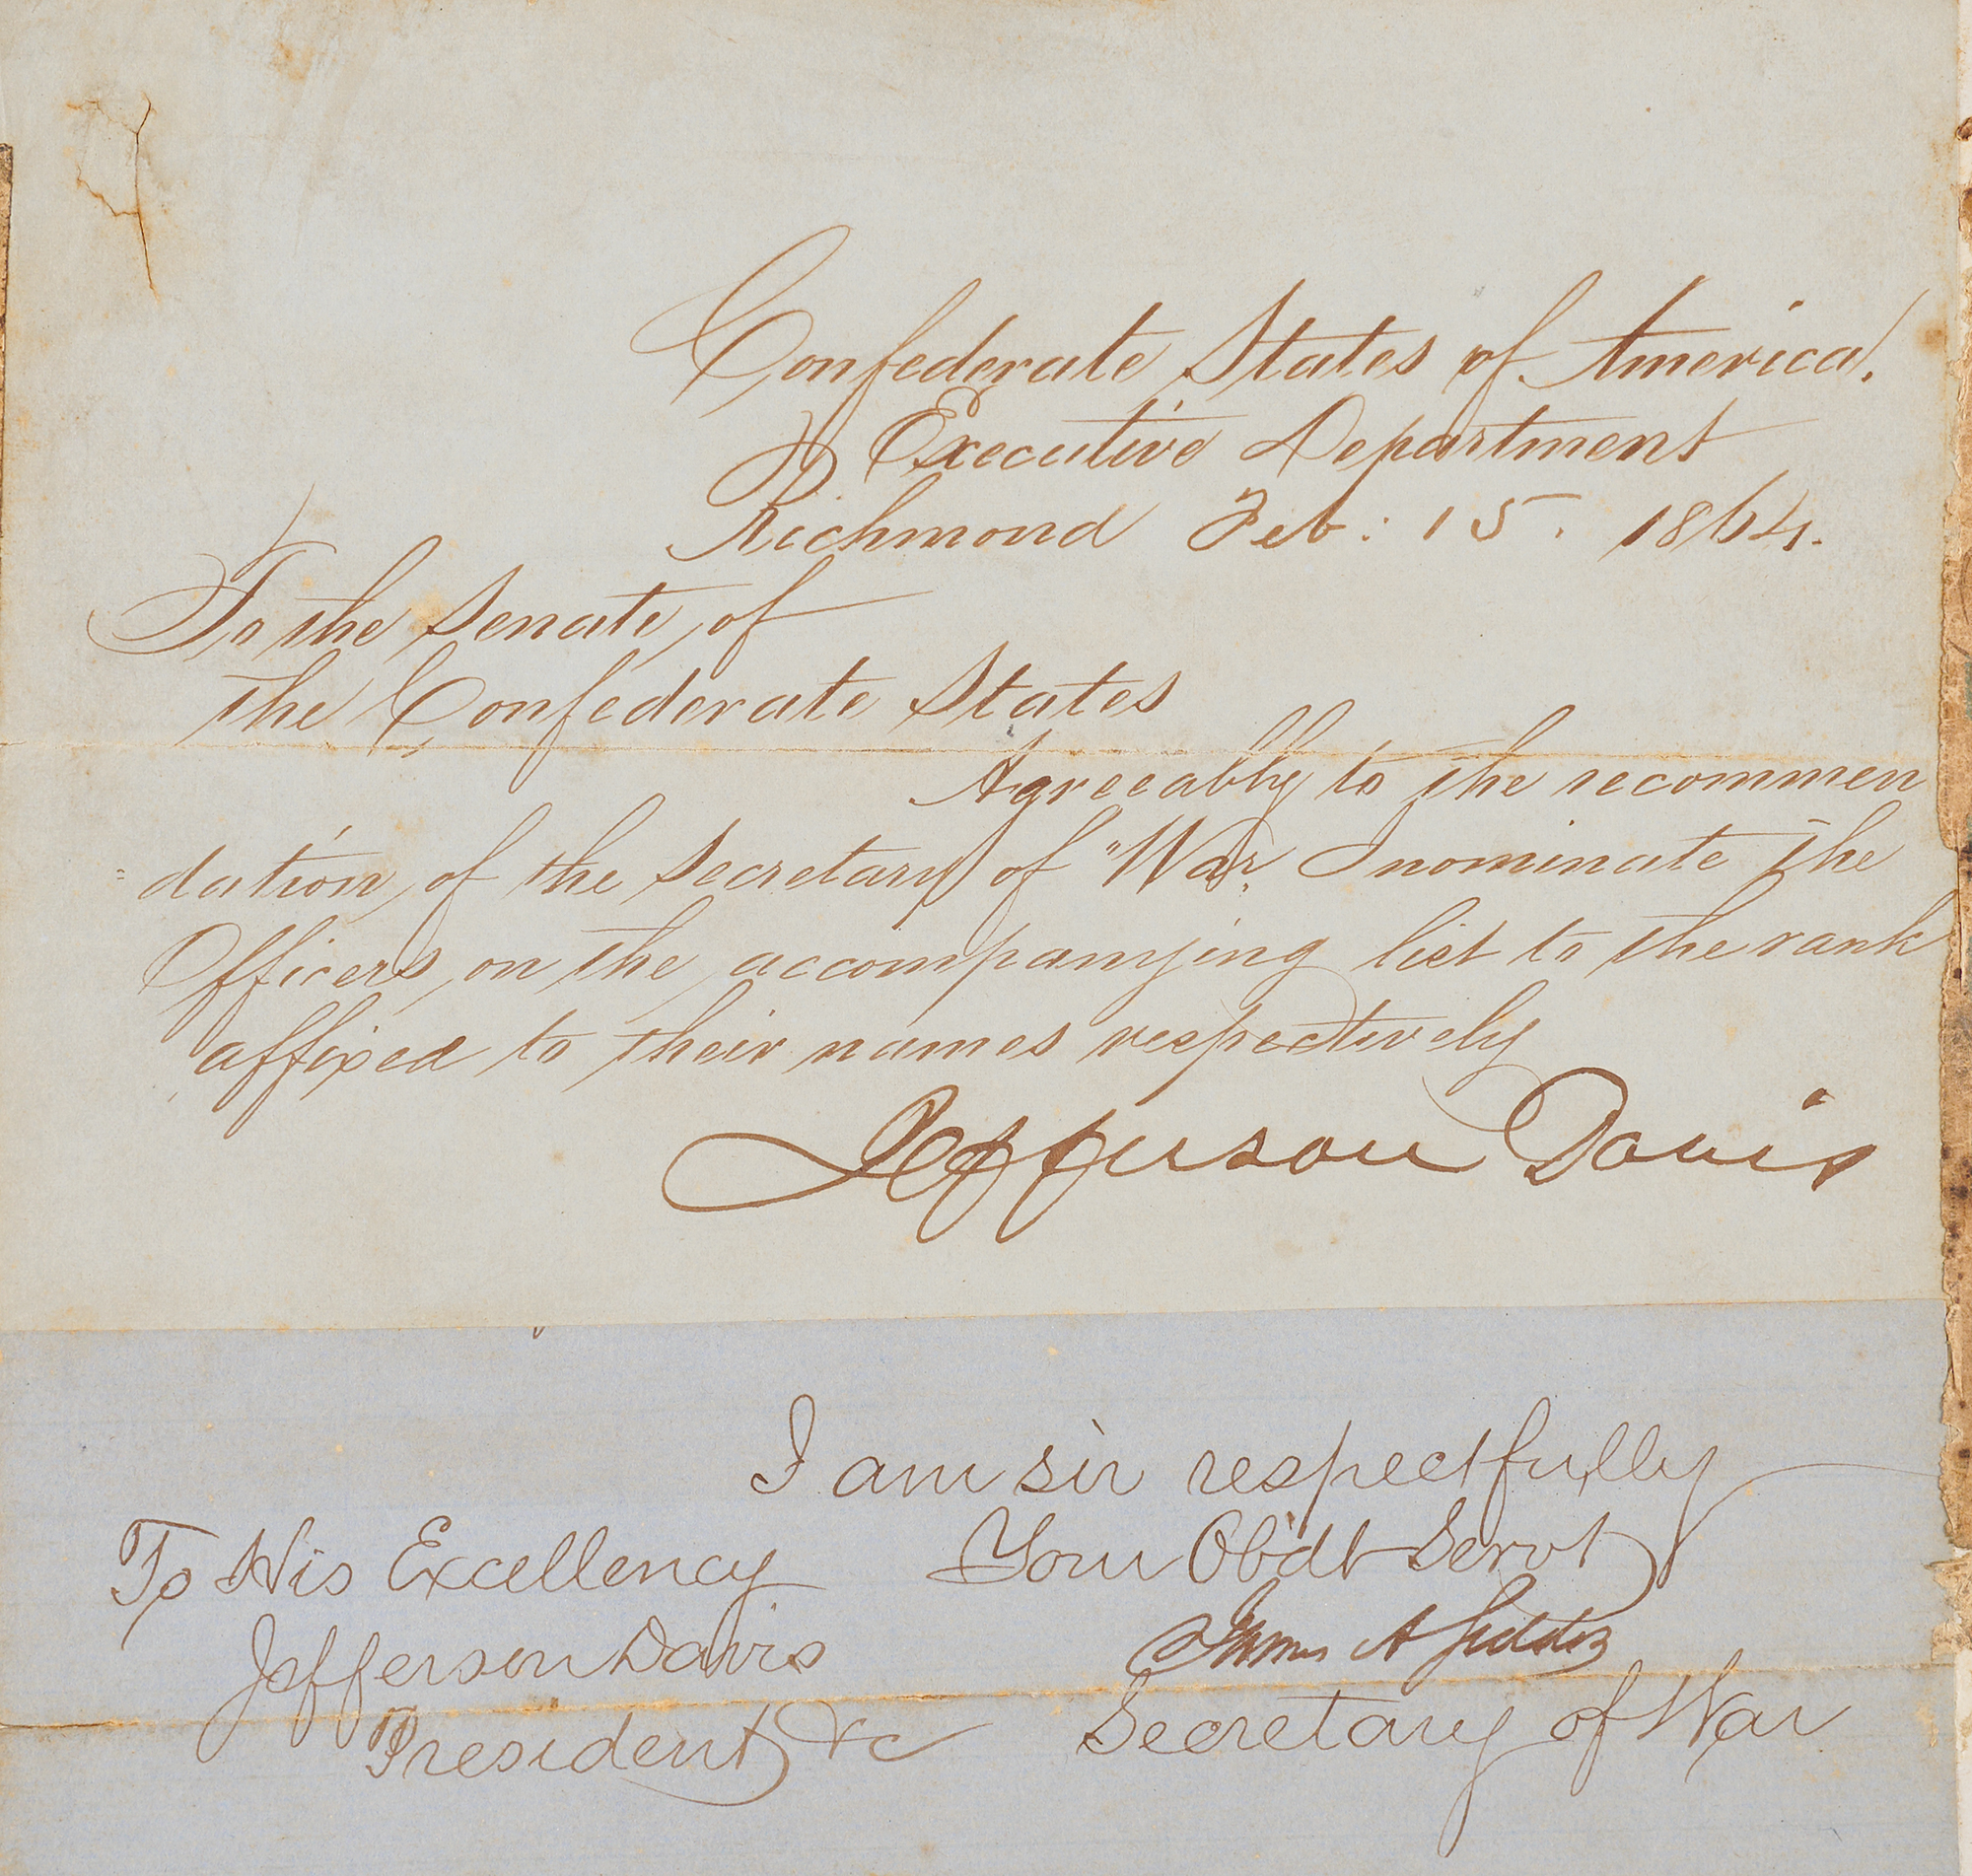 Confederate States of America.
Executive Department
Richmond Feb: 15. 1864.
To the Senate of
the Confederate States
Agreeably to the recommen
=dation of the Secretary of War, I nominate the
Officers on the accompanying list to the rank
affixed to their names respectively
Jefferson Davis
I am sir respectfully
To His Excellency Your Obdt Servt
Jefferson Davis James A Seddon
President &c Secretary of War